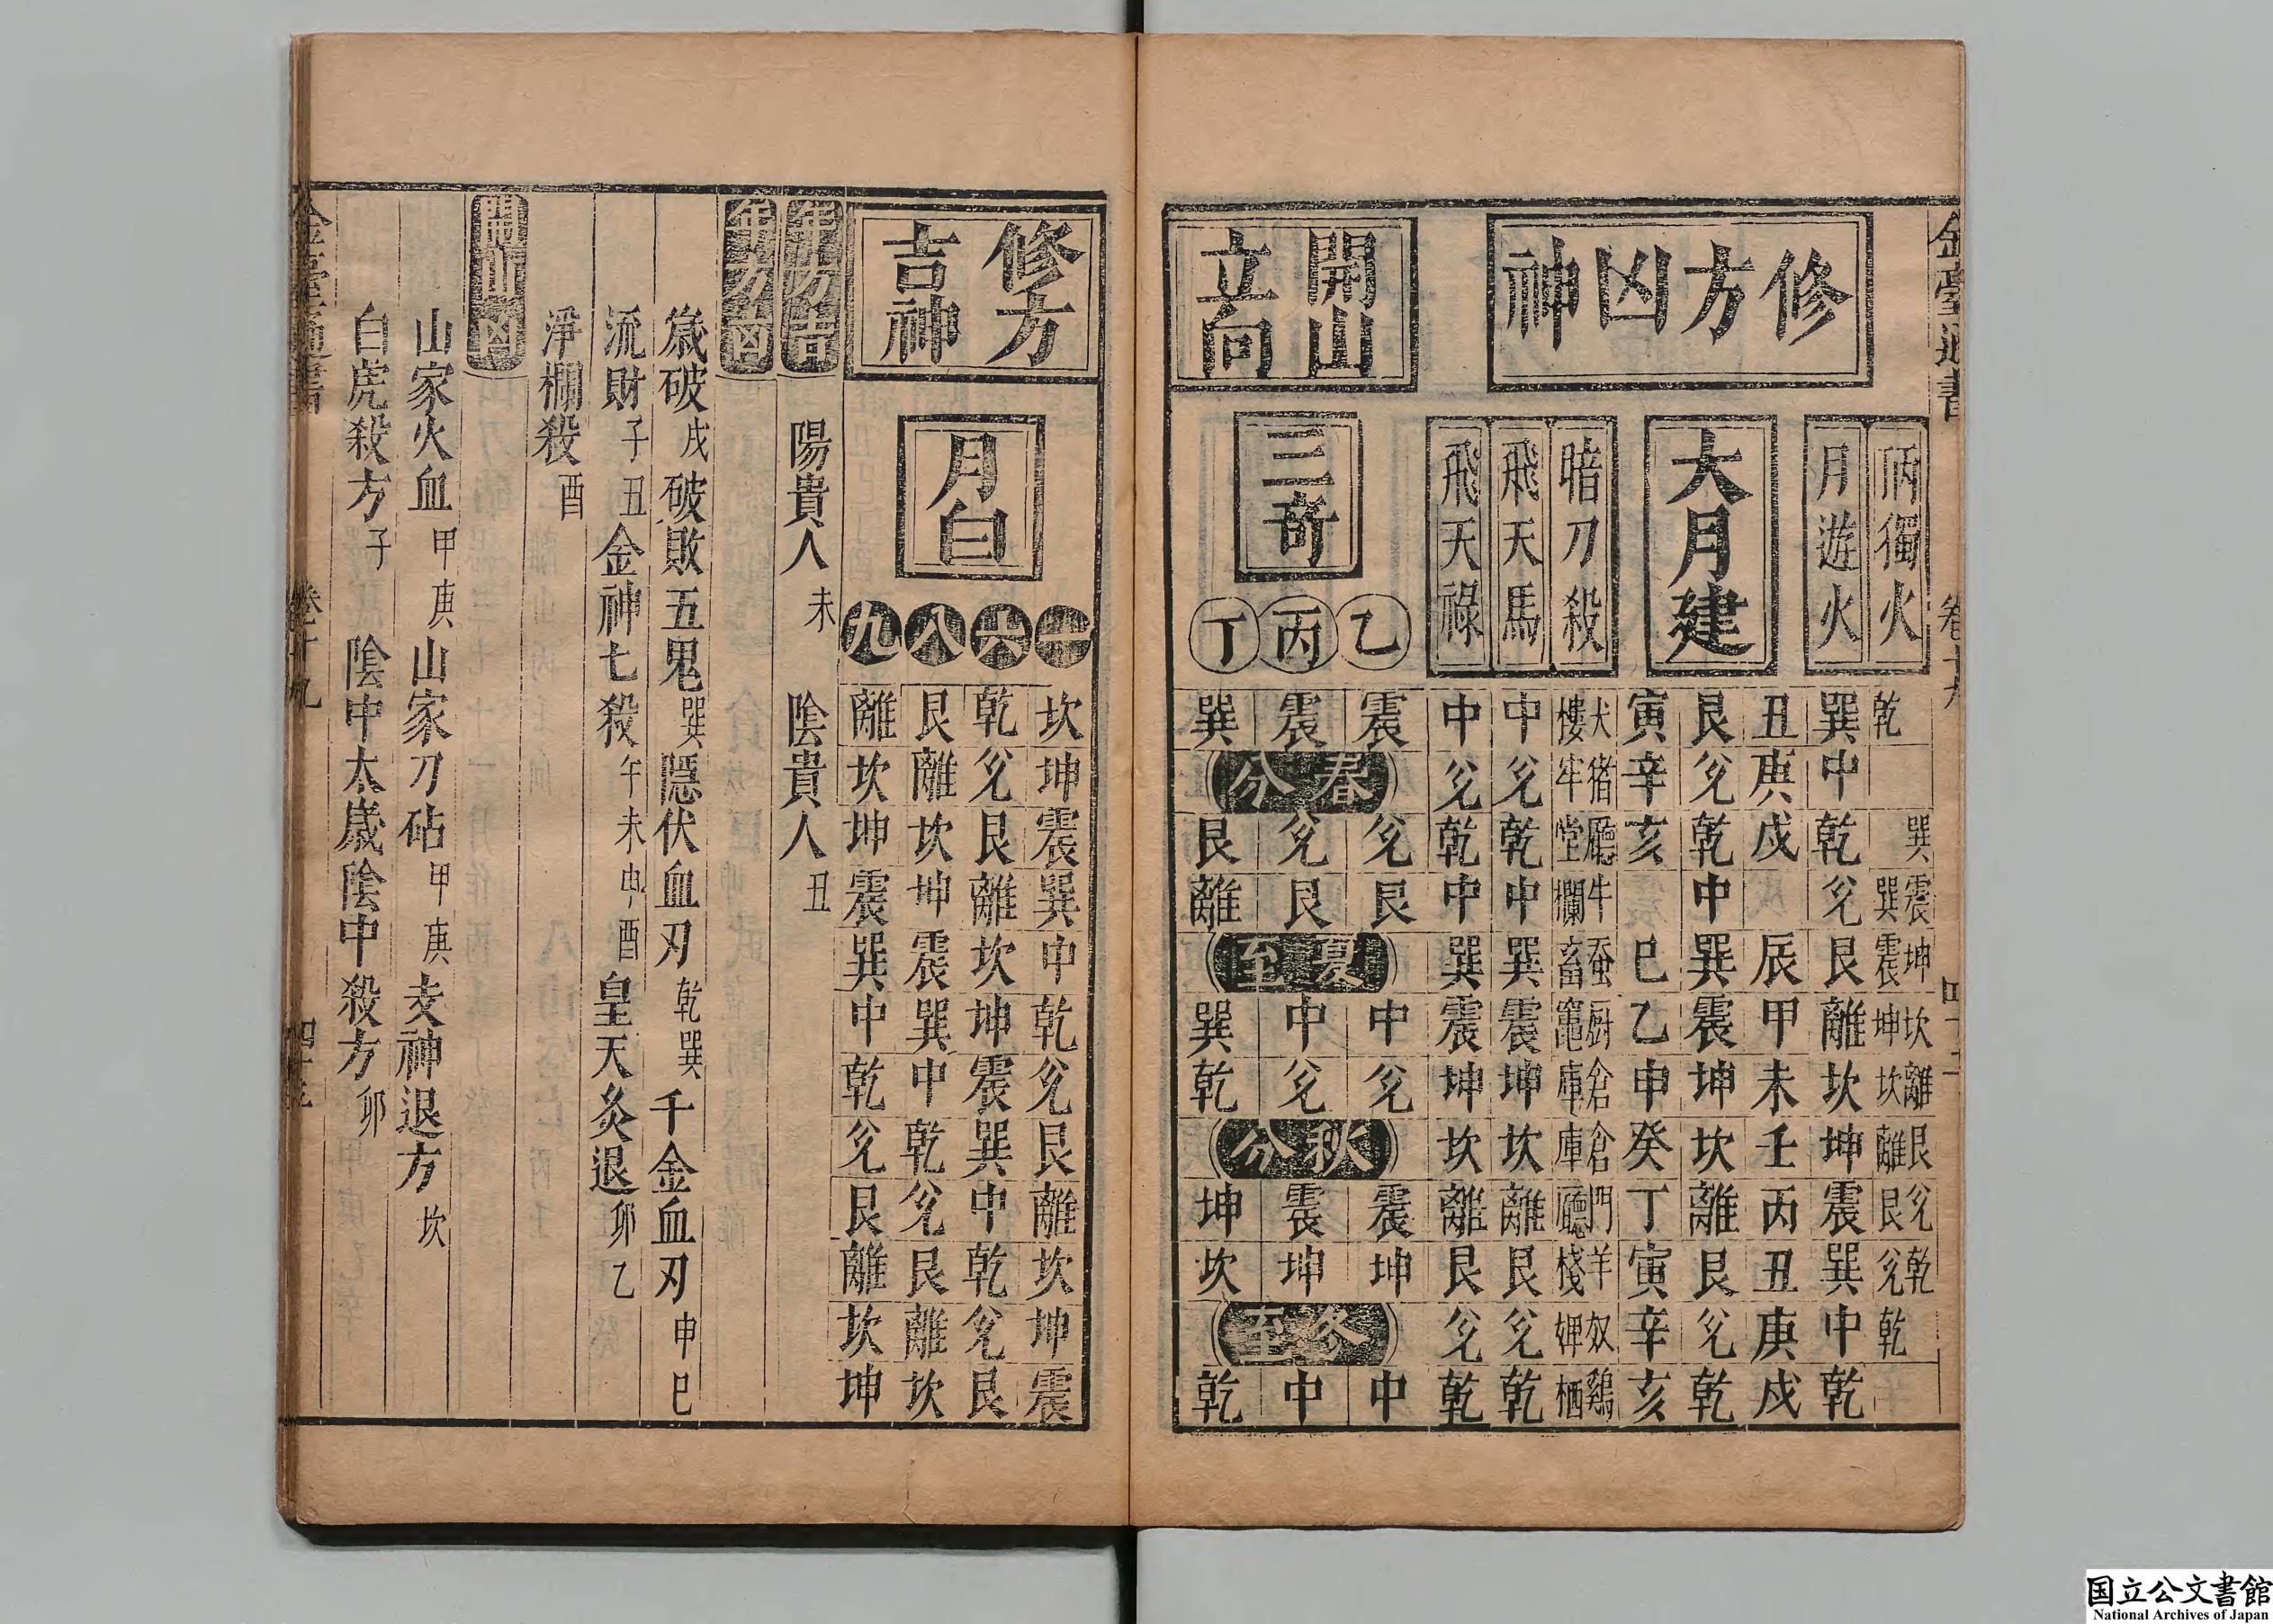 修方凶神
丙獨火 乾 巽 巽震 震坤 坤坎 坎離 離艮 艮兌 兌乾 乾
月遊火 巽 中 乾 兌 艮 離 坎 坤 震 巽 中 乾
大月建
丑 庚 戌 辰 甲 未 壬 丙 丑 庚 戌
艮 兌 乾 中 巽 震 坤 坎 離 艮 兌 乾
寅 辛 亥 巳 乙 申 癸 丁 寅 辛 亥
暗刀殺 犬樓 猪牢 廳堂 牛欄 蚕畜 厨竈 倉庫 倉庫 門廳 羊棧 奴婢 鷄栖
飛天馬 中 兌 乾 中 巽 震 坤 坎 離 艮 兌 乾
飛天祿 中 兌 乾 中 巽 震 坤 坎 離 艮 兌 乾
開山立向
三奇
乙 震 兌 艮 中 兌 震 坤 中
丙 震 兌 艮 中 兌 震 坤 中
丁 巽 艮 離 巽 乾 坤 坎 乾
春分
夏至
秋分
冬至
修方吉神
月白
一 坎 坤 震 巽 中 乾 兌 艮 離 坎 坤 震
六 乾 兌 艮 離 坎 坤 震 巽 中 乾 兌 艮
八 艮 離 坎 坤 震 巽 中 乾 兌 艮 離 坎
九 離 坎 坤 震 巽 中 乾 兌 艮 離 坎 坤
年方吉 陽貴人 未 陰貴人 丑
年方凶
歲破 戌 破敗五鬼 巽 隱伏血刃 乾巽 千金血刃 申巳
流財 子丑 金神七殺 午未申酉 皇天灸退 卯乙
淨欄殺 酉
開山凶
山家火血 甲庚 山家刀砧 甲庚 支神退方 坎
白虎殺方 子 陰中太歲陰中殺方 卯
国立公文書館
National Archives of Japan